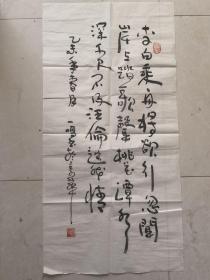 李白乘舟將欲行忽聞
岸上踏歌聲桃花潭水
深千尺不及汪倫送我情
乙未年春月